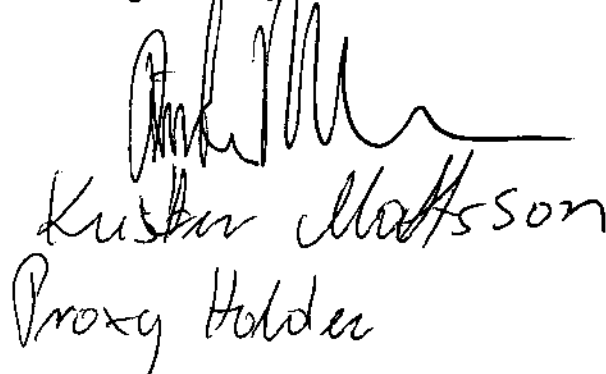 Krister Mattsson
Proxy Holder